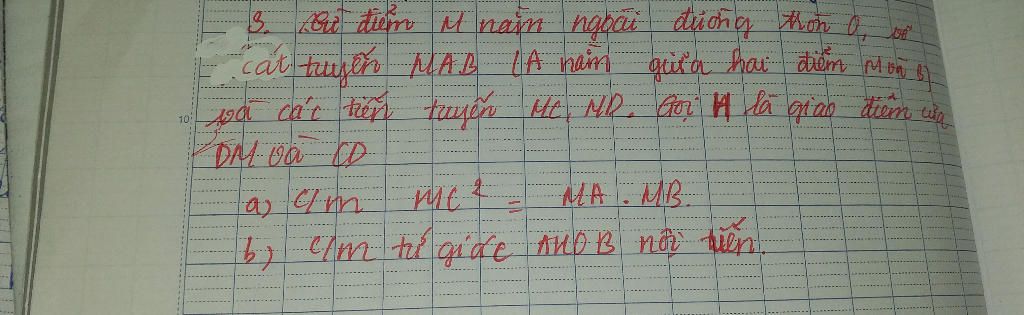 3. Từ điểm M nằm ngoài đường tròn O, vẽ
cát tuyến MAB (A nằm giữa hai điểm M và B)
và các tiến tuyến MC, MD. Gọi H là giao điểm của
OM và CD
a) C/m MC² = MA . MB.
b) C/m tứ giác AHOB nội tiến.
10